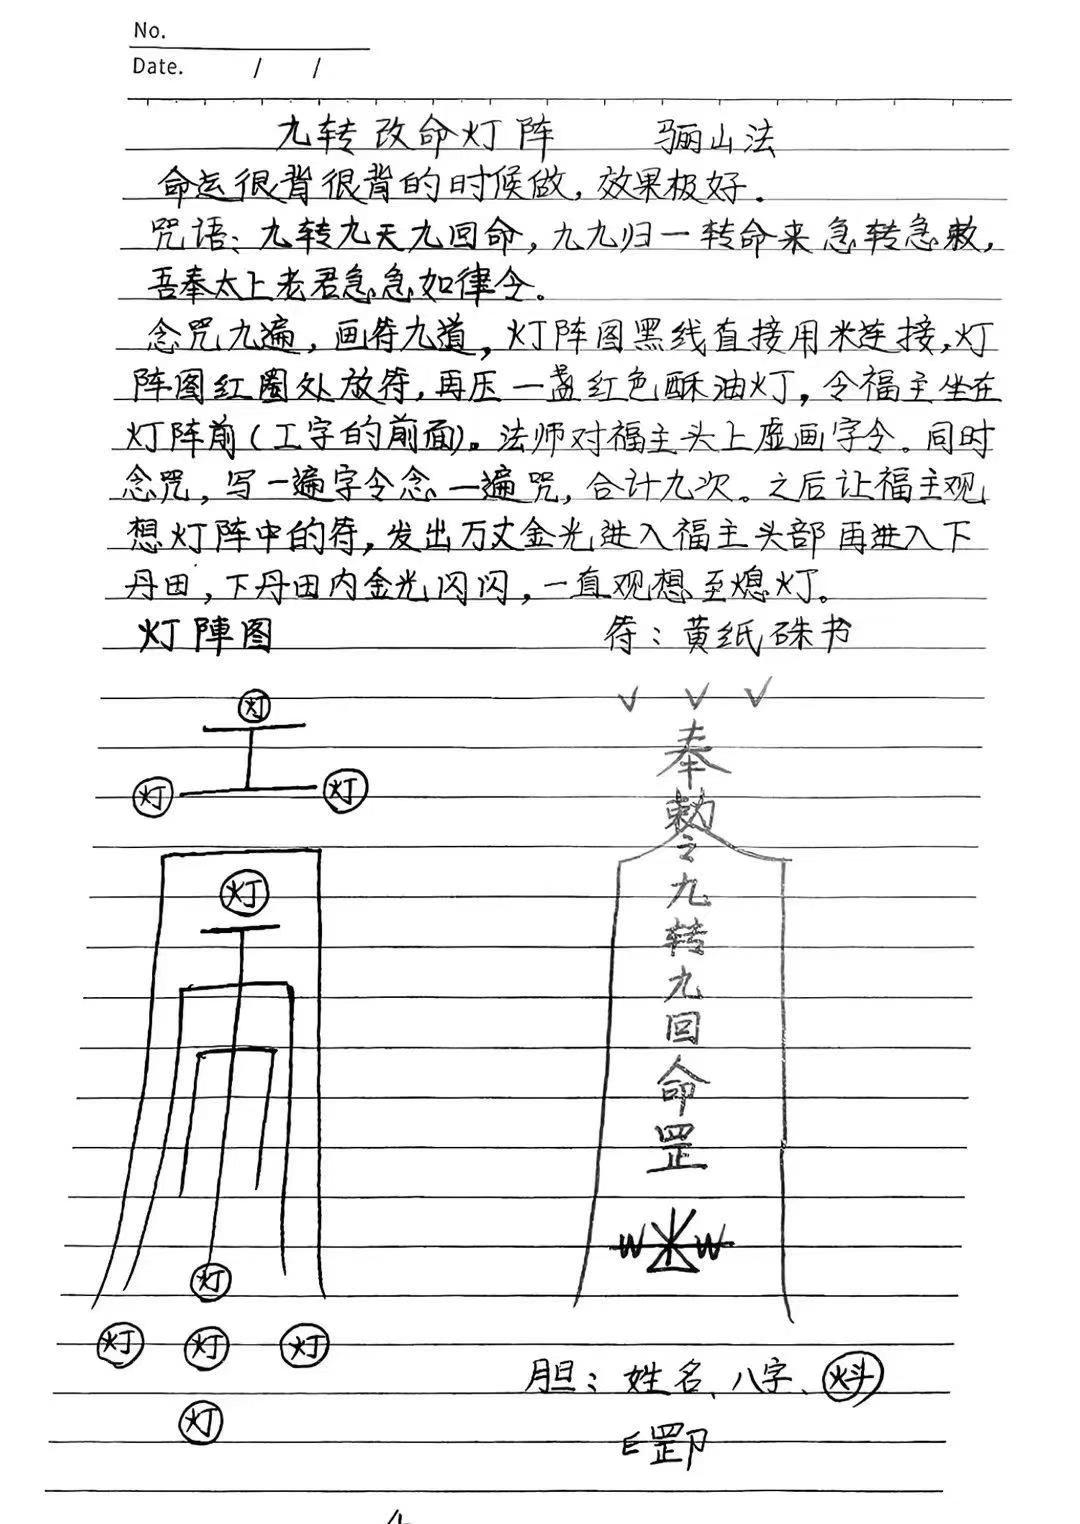 No.
Date. / /
九转改命灯阵 骊山法
命运很背很背的时候做,效果极好.
咒语:九转九天九回命,九九归一转命来急转急敕,
吾奉太上老君急急如律令。
念咒九遍,画符九道,灯阵图黑线直接用米连接,灯
阵图红圈处放符,再压一盏红色酥油灯,令福主坐在
灯阵前(工字的前面)。法师对福主头上虚画字令。同时
念咒,写一遍字令念一遍咒,合计九次。之后让福主观
想灯阵中的符,发出万丈金光进入福主头部再进入下
丹田,下丹田内金光闪闪,一直观想至熄灯。
灯陣图
符:黄纸硃书
灯
灯 灯
灯
灯
灯 灯 灯
灯
奉
敕
令
九
转
九
回
命
罡
W W
胆:姓名、八字、